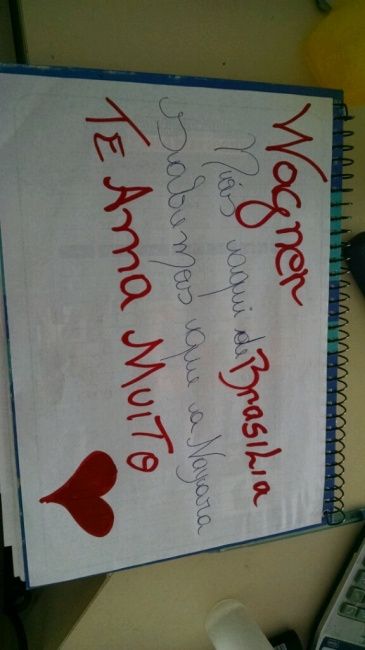 Wagner
Nós aqui de Brasília
Sabemos que a Nayara
TE Ama MUITO